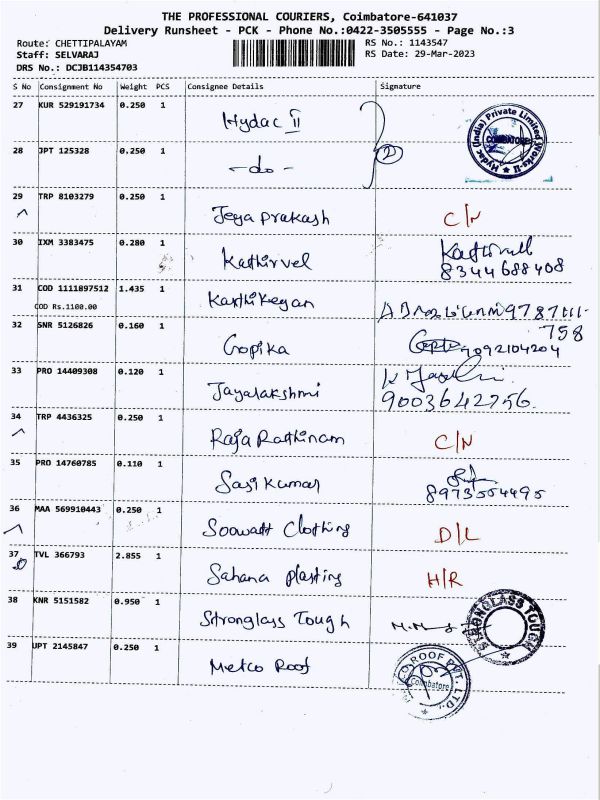 THE PROFESSIONAL COURIERS, Coimbatore-641037
Delivery Runsheet - PCK - Phone No.:0422-3505555 - Page No.:3
Route: CHETTIPALAYAM RS No.: 1143547
Staff: SELVARAJ RS Date: 29-Mar-2023
DRS No.: DCJB114354703
S No Consignment No Weight PCS Consignee Details Signature
27 KUR 529191734 0.250 1 Hydac II
Hydac (India) Private Limited Works-II COIMBATORE
28 JPT 125328 0.250 1 -do- 2
29 TRP 8103279 0.250 1 Jeya prakash C/N
30 IXM 3383475 0.280 1 Kathirvel Kathirvel
8344688408
31 COD 1111897512 1.435 1 Karthikeyan 9787111-
COD Rs.1100.00 758
32 SNR 5126826 0.160 1 Gopika 9092104204
33 PRO 14409308 0.120 1 Jayalakshmi
9003642756.
34 TRP 4436325 0.250 1 Raja Rathinam C/N
35 PRO 14760785 0.110 1 Sasi Kumar
8973554495
36 MAA 569910443 0.250 1 Soowatt Clothing D/L
37 TVL 366793 2.855 1 Sahana plasting H/R
38 KNR 5151582 0.950 1 Stronglass Tough
STRONGLASS TOUGH
39 UPT 2145847 0.250 1 Metco Roof
METCO ROOF PVT. LTD. Coimbatore